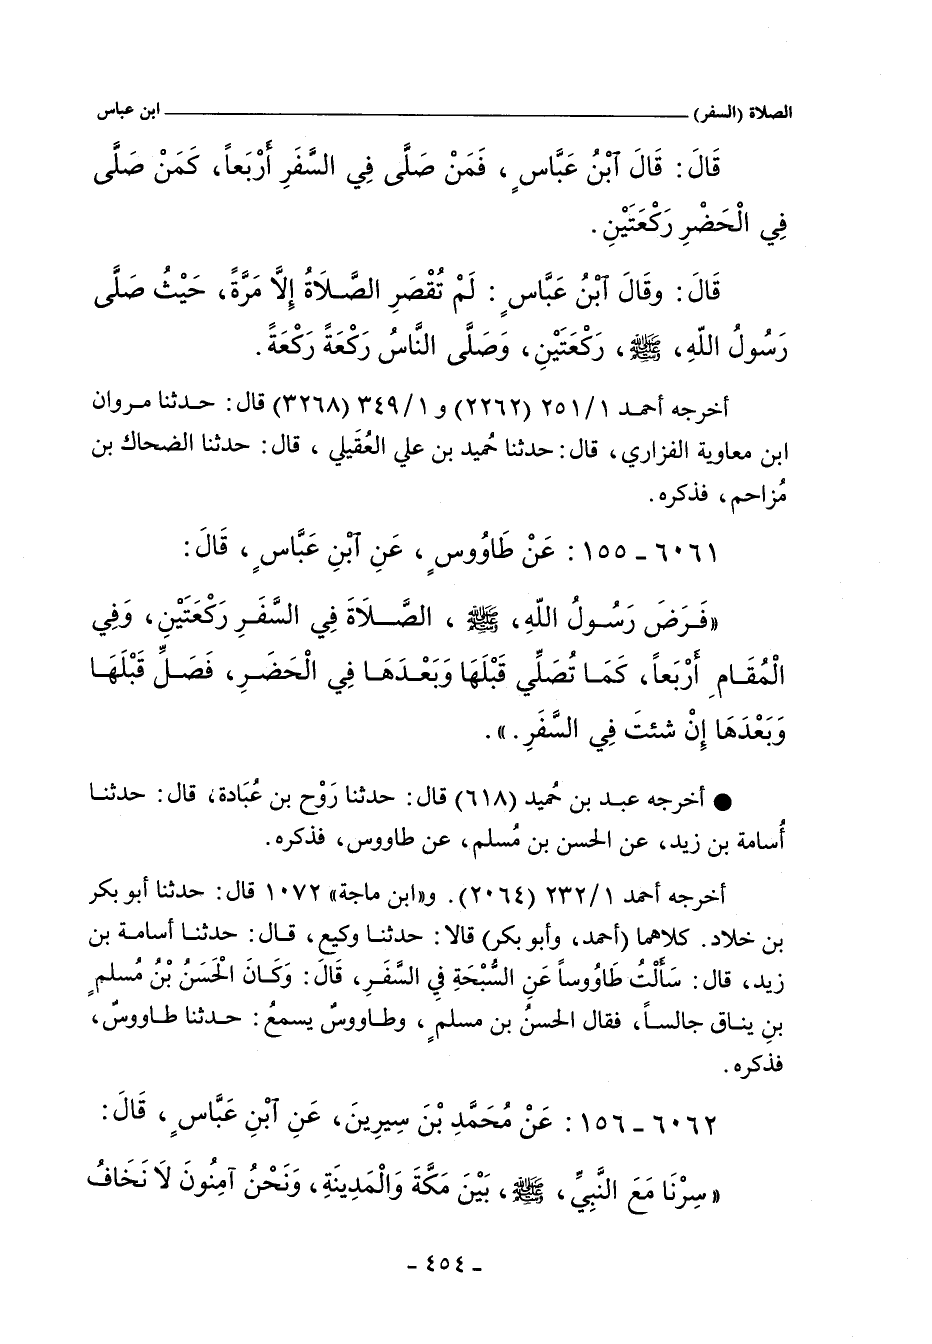 الصلاة (السفر) ــــــــــــــــــــ ابن عباس
قَالَ: قَالَ آبْنُ عَبَّاسٍ، فَمَنْ صَلَّى فِي السَّفَرِ أَرْبَعاً، كَمَنْ صَلَّى
فِي الْحَضْرِ رَكْعَتَيْنِ.
قَالَ: وقَالَ آبْنُ عَبَّاسٍ: لَمْ تُقْصَرِ الصَّلَاةُ إِلَّا مَرَّةً، حَيْثُ صَلَّى
رَسُولُ اللّهِ، ﷺ، رَكْعَتَيْنِ، وَصَلَّى النَّاسُ رَكْعَةً رَكْعَةً.
أخرجه أحمد ٢٥١/١ (٢٢٦٢) و ٣٤٩/١ (٣٢٦٨) قال: حدثنا مروان
ابن معاوية الفزاري، قال: حدثنا حُميد بن علي العُقَيلي، قال: حدثنا الضحاك بن
مُزاحم، فذكره.
٦٠٦١ - ١٥٥: عَنْ طَاوُوسٍ، عَنِ آبْنِ عَبَّاسٍ، قَالَ:
«فَرَضَ رَسُولُ اللّهِ، ﷺ، الصَّلَاةَ فِي السَّفَرِ رَكْعَتَيْنِ، وَفِي
الْمُقَامِ أَرْبَعاً، كَمَا تُصَلِّي قَبْلَهَا وَبَعْدَهَا فِي الْحَضَرِ، فَصَلِّ قَبْلَهَا
وَبَعْدَهَا إِنْ شئتَ فِي السَّفَرِ.».
● أخرجه عبد بن حُميد (٦١٨) قال: حدثنا رَوْح بن عُبَادة، قال: حدثنا
أُسامة بن زيد، عن الحسن بن مُسلم، عن طاووس، فذكره.
أخرجه أحمد ٢٣٢/١ (٢٠٦٤). و«ابن ماجة» ١٠٧٢ قال: حدثنا أبو بكر
بن خلاد. كلاهما (أحمد، وأبو بكر) قالا: حدثنا وكيع، قال: حدثنا أسامة بن
زيد، قال: سَأَلْتُ طَاوُوساً عَنِ السُّبْحَةِ فِي السَّفَرِ، قَالَ: وَكَانَ الْحَسَنُ بْنُ مُسلمٍ
بنِ يناق جالساً، فقال الحسنُ بن مسلمٍ، وطاووسٌ يسمعُ: حدثنا طاووسٌ،
فذكره.
٦٠٦٢ - ١٥٦: عَنْ مُحَمَّدِ بْنَ سِيرِينَ، عَنِ آبْنِ عَبَّاسٍ، قَالَ:
«سِرْنَا مَعَ النَّبِيِّ، ﷺ، بَيْنَ مَكَّةَ وَالْمَدِينَةِ، وَنَحْنُ آمِنُونَ لَا نَخَافُ
- ٤٥٤ -